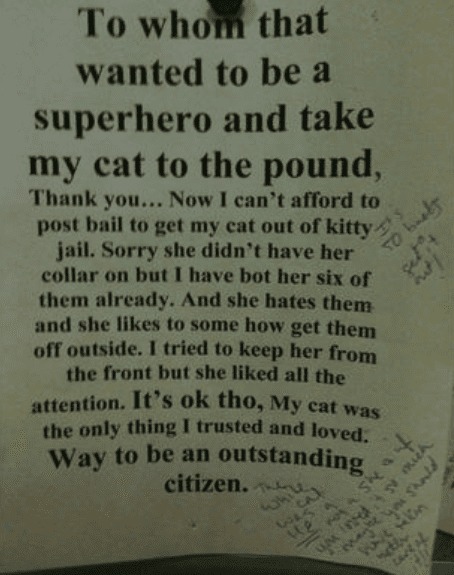 To whom that
wanted to be a
superhero and take
my cat to the pound,
Thank you... Now I can't afford to
post bail to get my cat out of kitty
jail. Sorry she didn't have her
collar on but I have bot her six of
them already. And she hates them
and she likes to some how get them
off outside. I tried to keep her from
the front but she liked all the
attention. It's ok tho, My cat was
the only thing I trusted and loved.
Way to be an outstanding
citizen.
It's
50 bucks
get
out!
The
white cat
was a
HE not a she & if
you loved it so much
maybe you should
have taken
better
care of it